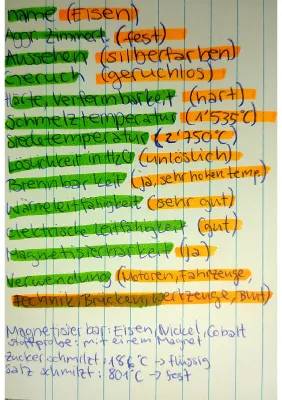 Name (Eisen)
Aggr. Zimmert. (fest)
Aussehen (silberfarben)
Geruch (geruchlos)
Härte, Verformbarkeit (hart)
Schmelztemperatur (1'535°C)
Siedetemperatur (2'750°C)
Löslichkeit in H2O (unlöslich)
Brennbarkeit (ja, sehr hohen temp.)
Wärmeleitfähigkeit (sehr gut)
elektrische Leitfähigkeit (gut)
Magnetisierbarkeit (ja)
Verwendung (Motoren, Fahrzeuge,
Technik, Brücken, Werkzeuge, Blut)
Magnetisierbar: Eisen, Nickel, Cobalt
Stoffprobe: mit einem Magnet
Zucker schmilzt: 186°C → flüssig
Salz schmilzt: 801°C → fest